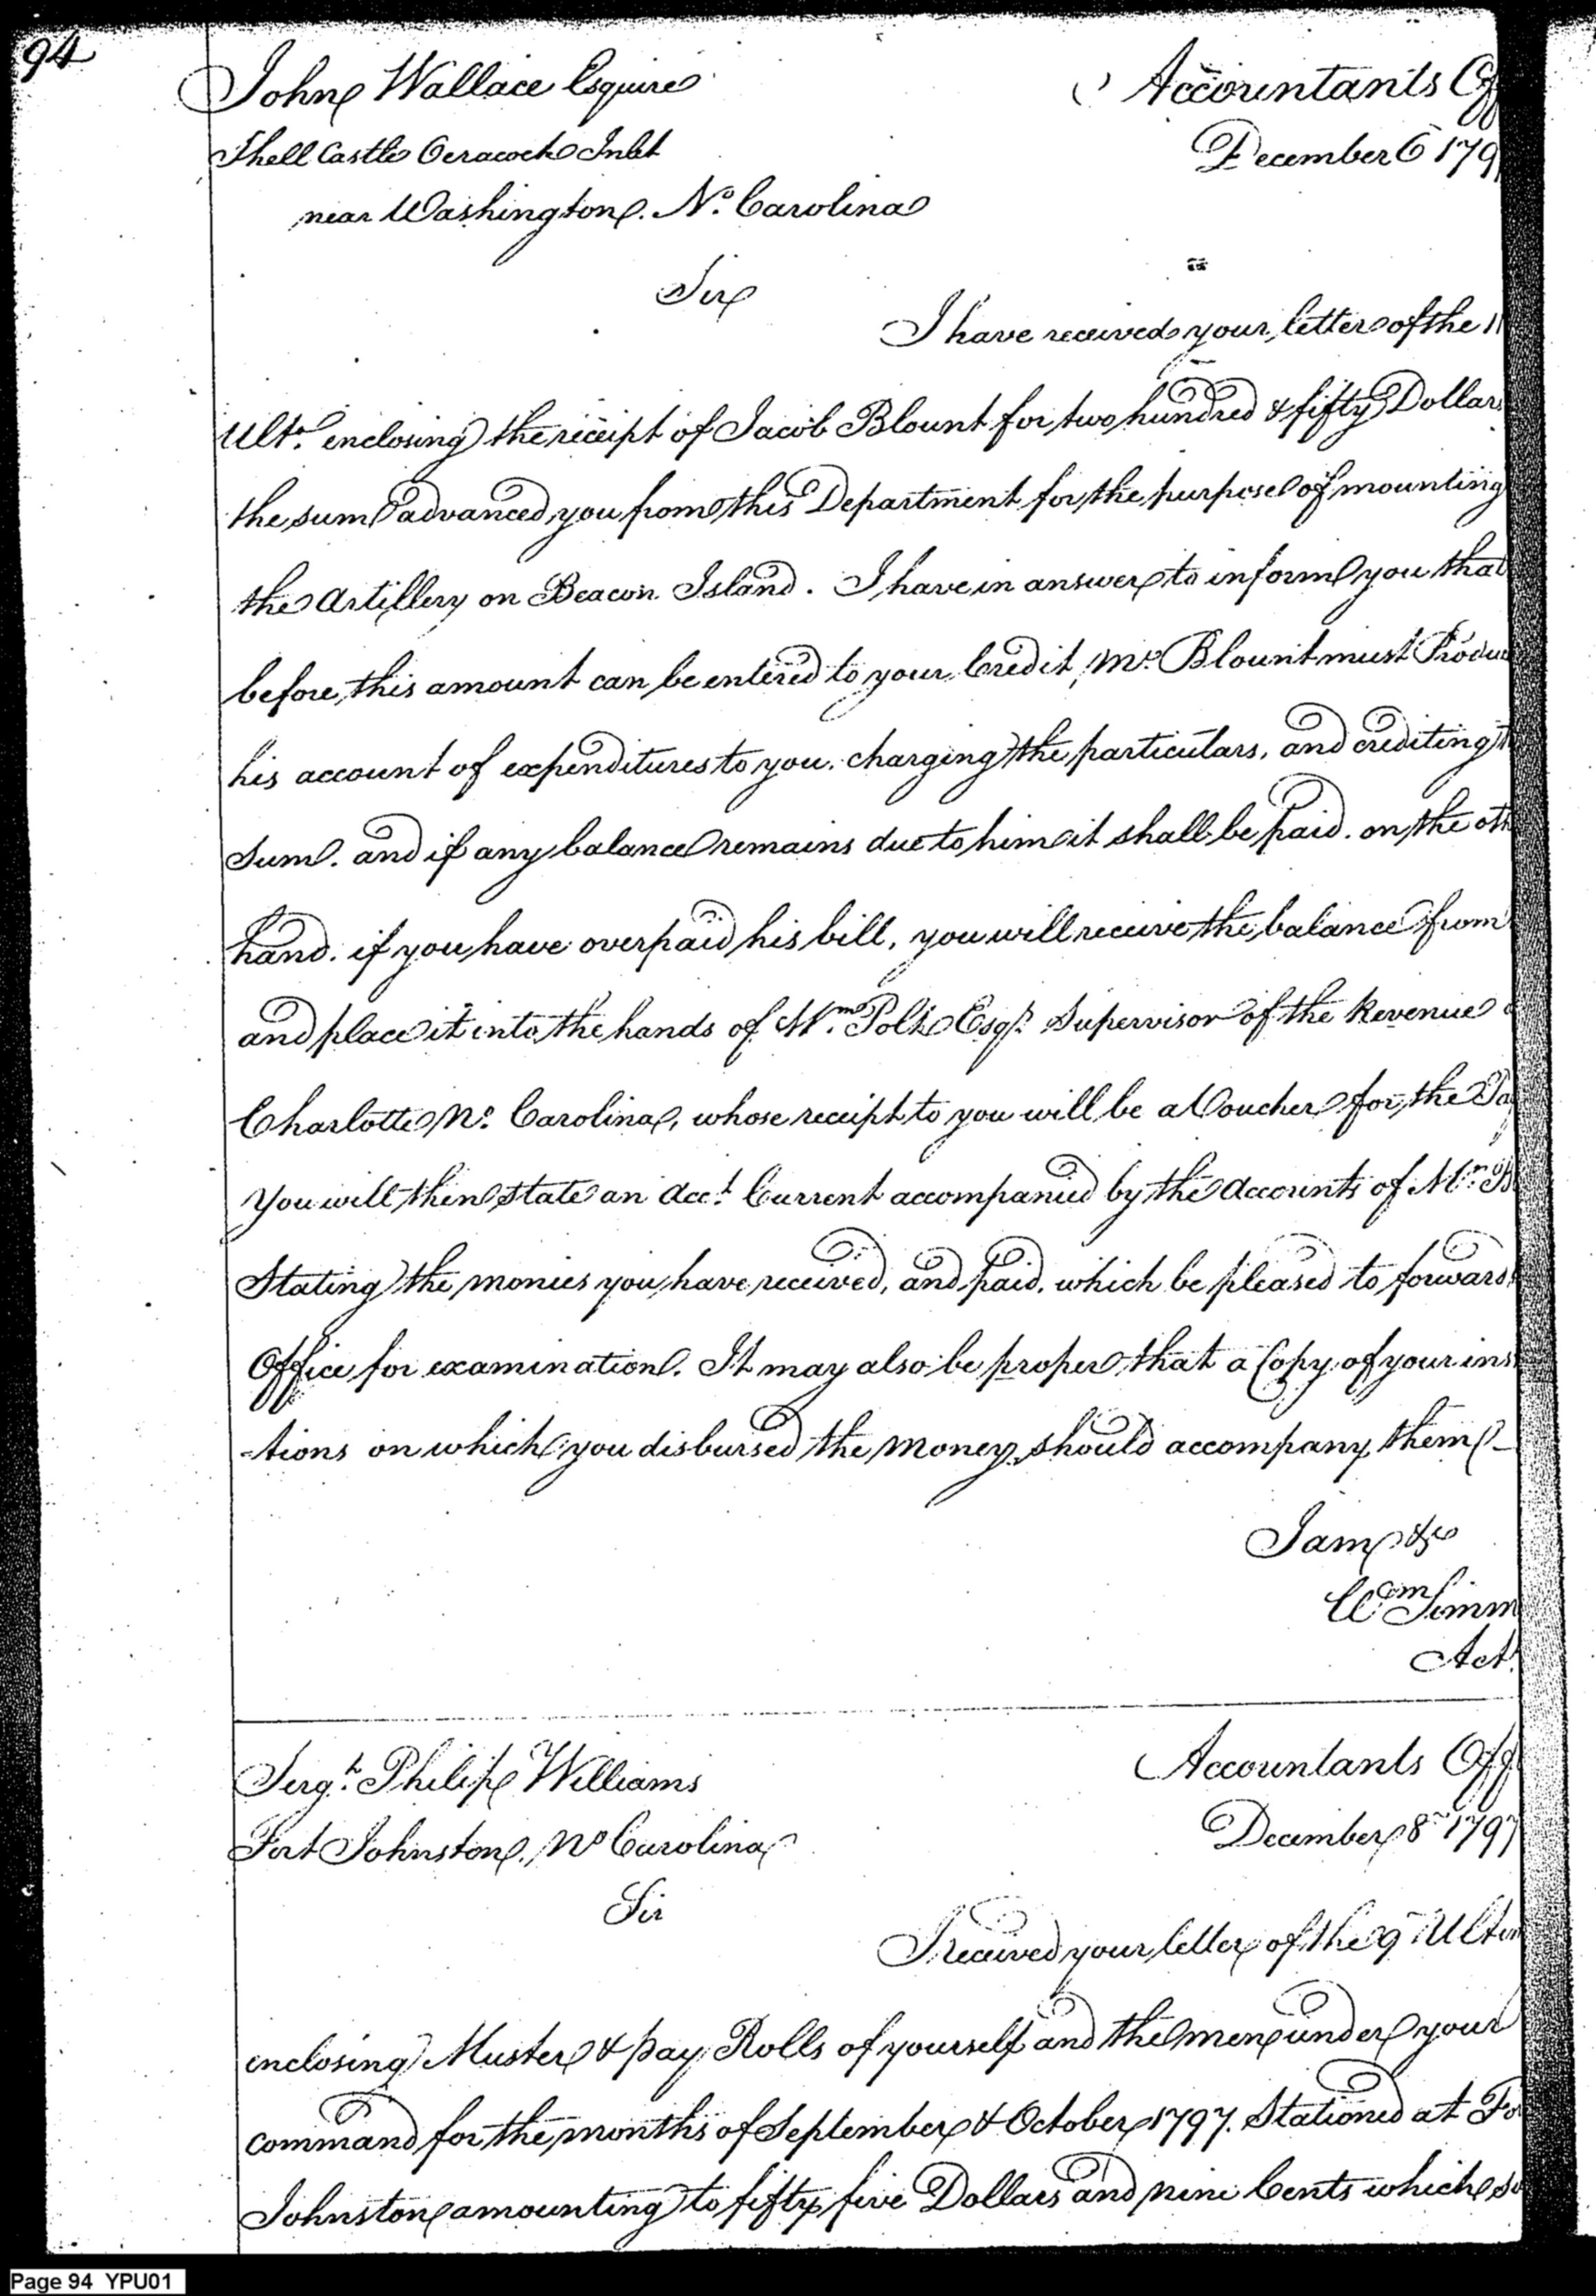 94
John Wallace Esquire
Accountants Off
Shell Castle Ocracock Inlet
December 6 179
near Washington. No. Carolina
Sir
I have received your letter of the 11
Ulto. enclosing the receipt of Jacob Blount for two hundred & fifty Dollars
the sum advanced you from this Department for the purpose of mounting
the Artillery on Beacon Island. I have in answer to inform you that
before this amount can be entered to your Credit, Mr. Blount must Produ
his account of expenditures to you. charging the particulars, and crediting
Sum. and if any balance remains due to him it shall be paid. on the oth
hand. if you have overpaid his bill, you will receive the balance from
and place it into the hands of Wm. Polk Esqr. Supervisor of the Revenue
Charlotte No. Carolina, whose receipt to you will be a Voucher for the Pay
You will then state an Acct. Current accompanied by the Accounts of Mr. B
Stating the monies you have received, and paid, which be pleased to forward
Office for examination. It may also be proper that a Copy of your ins
-tions on which you disbursed the money should accompany them-
I am &c
Wm Simm
Act.
Sergt. Philip Williams
Accountants Off
Fort Johnston. No Carolina
December 8 1797
Sir
I received your letter of the 9 Ulti
enclosing Muster & pay Rolls of yourself and the men under your
command for the months of September & October 1797. Stationed at Fo
Johnston amounting to fifty five Dollars and nine Cents which so
Page 94 YPU01